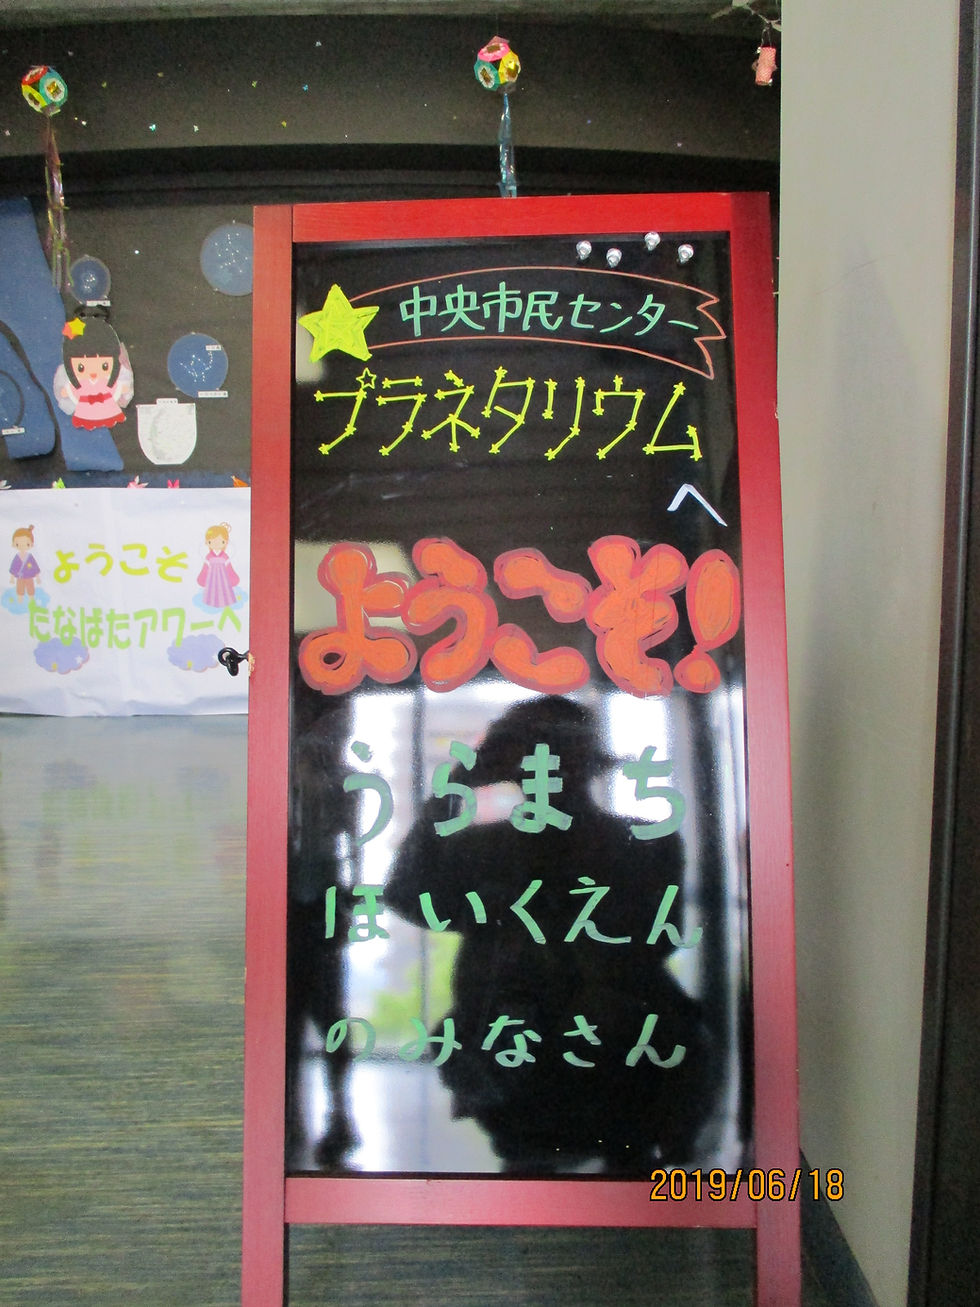 中央市民センター
プラネタリウム
へ
ようこそ!
うらまち
ほいくえん
のみなさん
ようこそ
たなばたアワーへ
2019/06/18